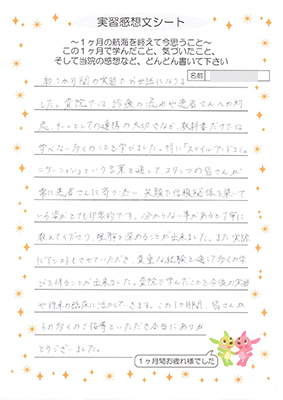 実習感想文シート
～1ヶ月の航海を終えて今思うこと～
この1ヶ月で学んだこと、気づいたこと、
そして当院の感想など、どんどん書いて下さい
名前
約1か月間の実習お世話になりま
した。貴院では治療の流れや患者さんへの対
応、チームとしての連携の大切さなど、教科書だけでは
学べない多くのことを学びました。特に「スマイルアンドコミュ
ニケーション」という言葉を通して、スタッフの皆さんが
常に患者さんに寄りそい、笑顔で信頼関係を築いて
いる姿がとても印象的です。分からない事があると丁寧に
教えてくださり、理解を深めることが出来ました。また実際
にアシストもさせていただき、貴重な経験を通じ多くの学
びを得ることが出来ました。貴院で学んだことを今後の実習
や将来の臨床に活かしていきます。この1か月間、皆さんか
らの多くのご指導をいただき本当にありが
とうございました。
1ヶ月間お疲れ様でした